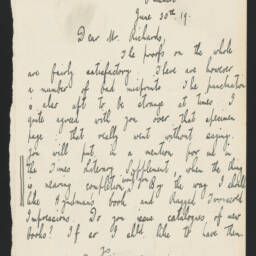 June 30th 19.
Dear Mr. Richards,
The proofs on the whole
are fairly satisfactory. There are however
a number of bad misprints. The punctuation
is also apt to be strange at times. I
quite agreed with you over that specimen
page, that really went without saying.
You will put in a mention for me in
the Times Literary Supplement when the thing
is nearing completion. By the way I shd like
like Hyndman's book and Ragged Trousered
Impressions. Do you issue catalogues of new
books? If so I shd like to have them.